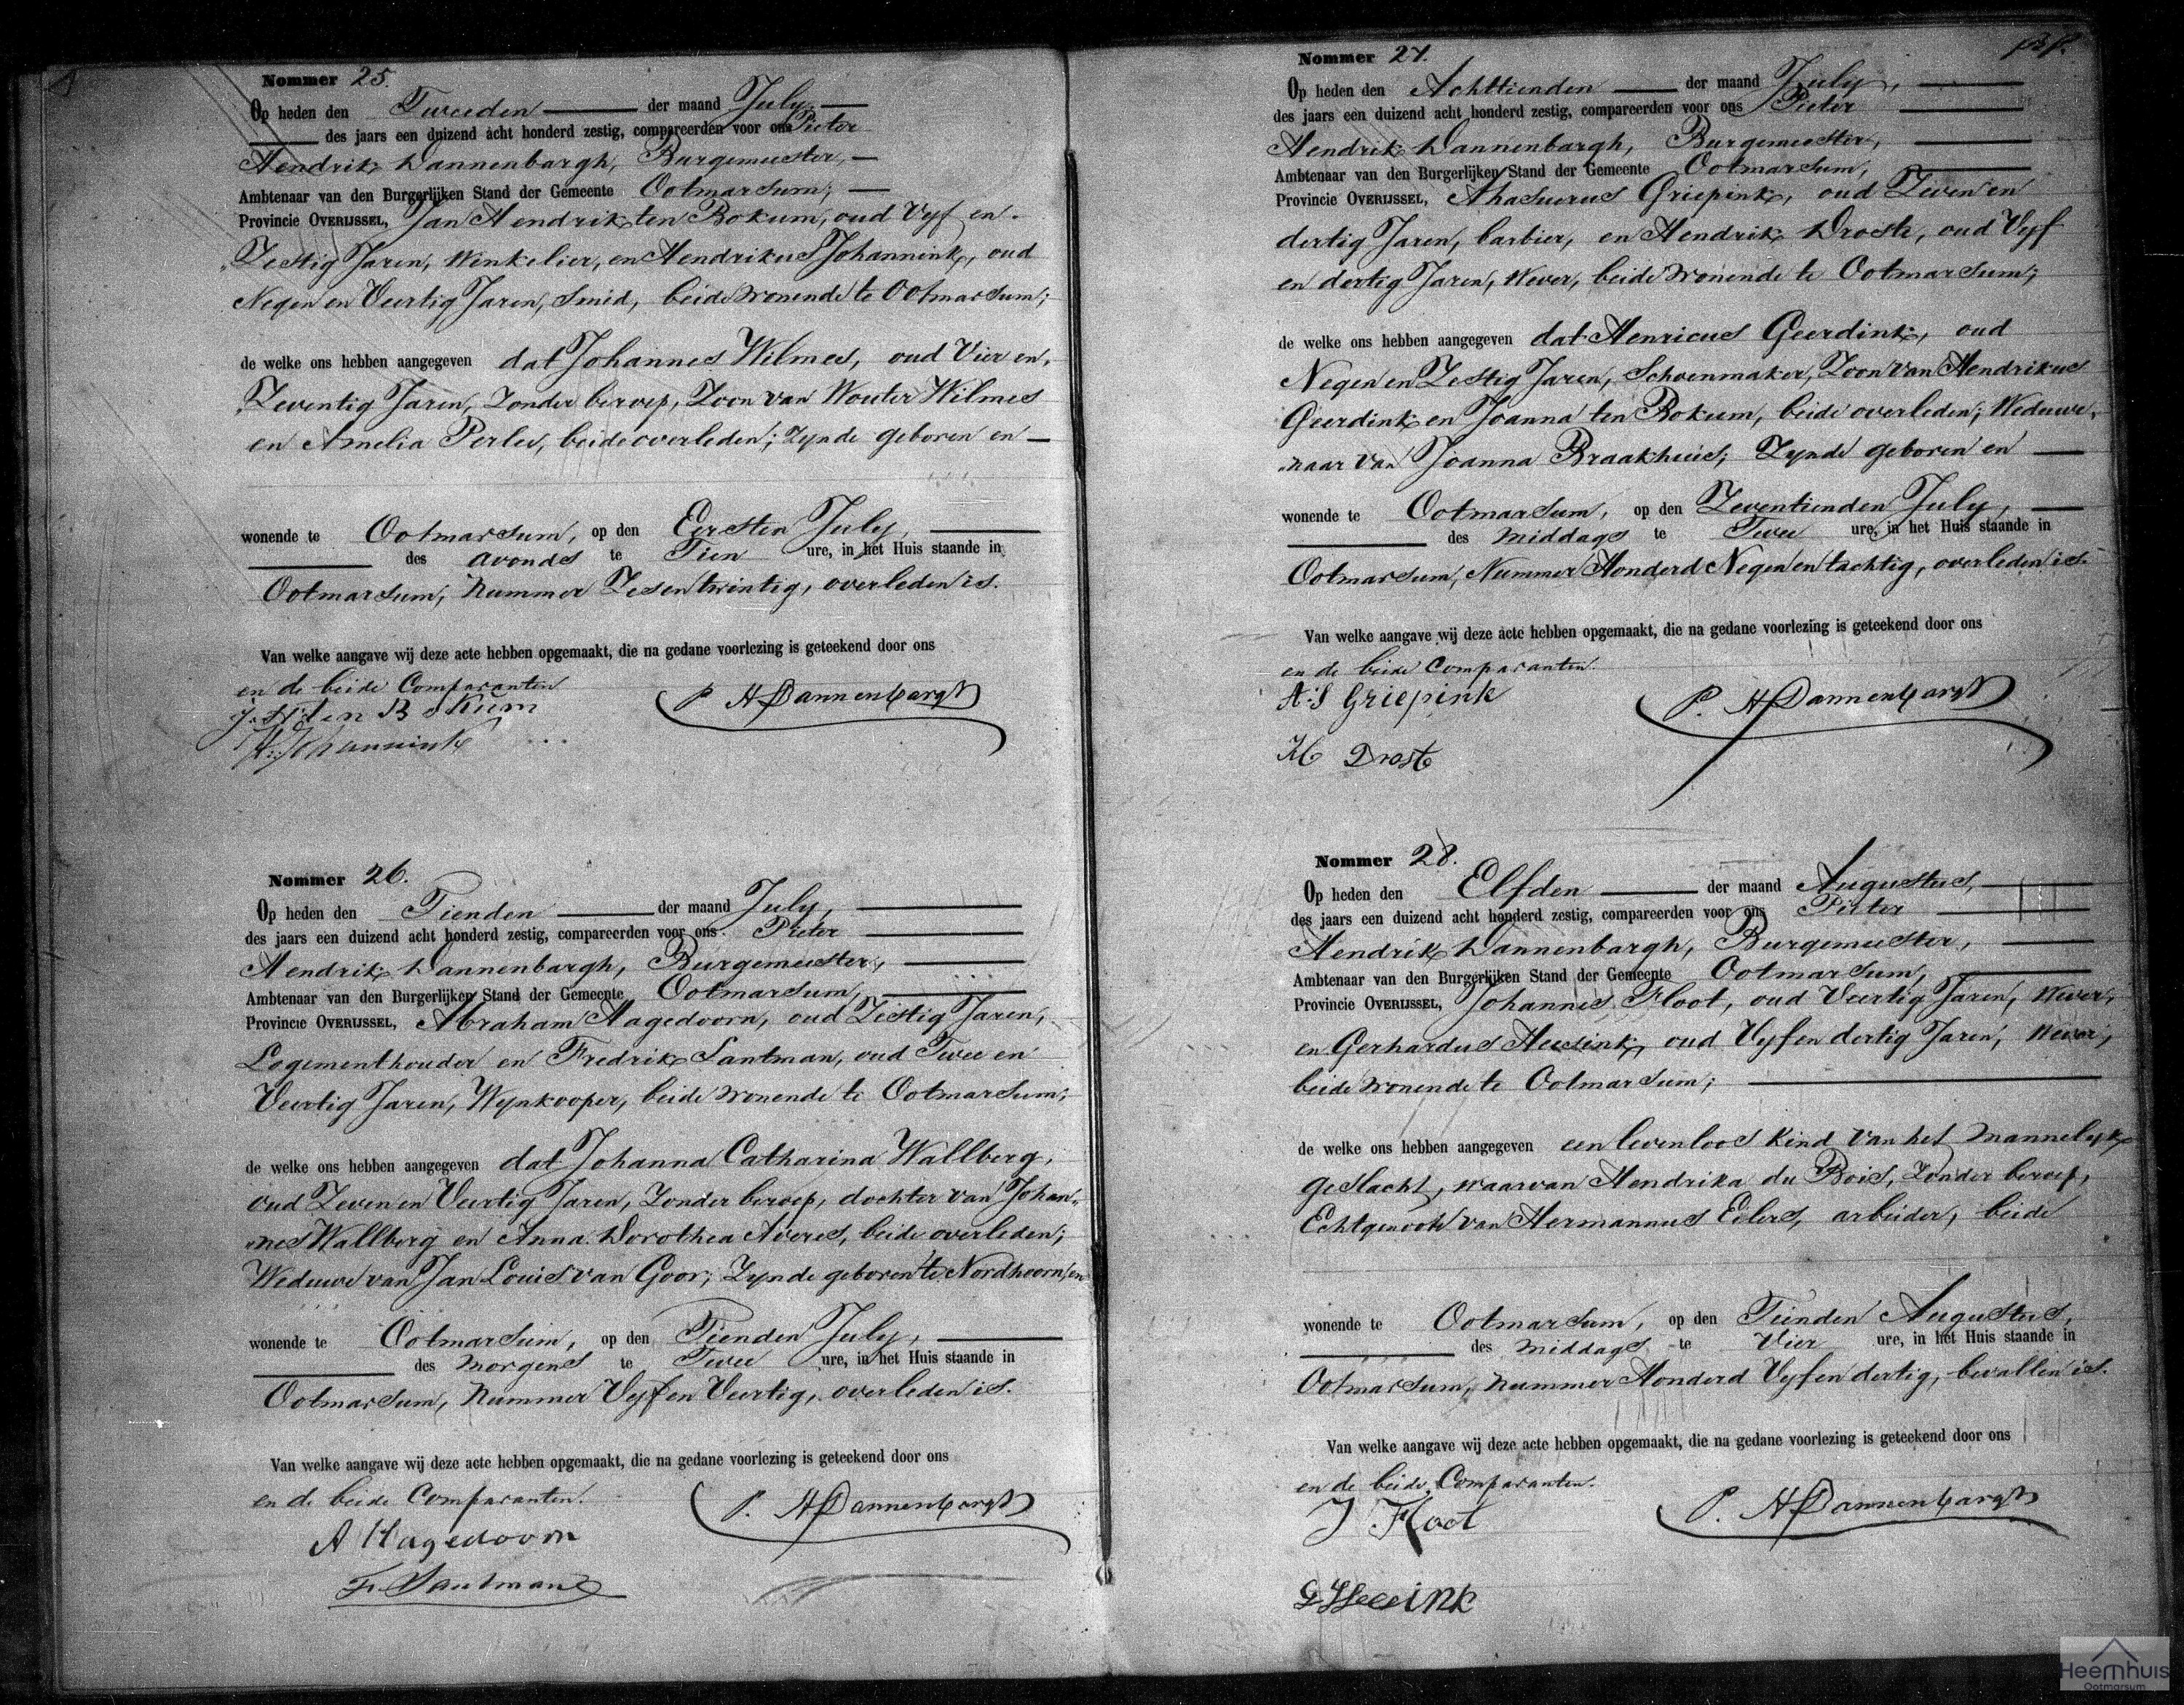 Nommer 25.
Op heden den Tweeden der maand July,
des jaars een duizend acht honderd zestig, compareerden voor ons Pieter
Hendrik Dannenbargh, Burgemeester,
Ambtenaar van den Burgerlijken Stand der Gemeente Ootmarsum,
Provincie OVERIJSSEL, Jan Hendrik ten Bokum, oud Vyf en
Zestig Jaren, Winkelier, en Hendrikus Johannink, oud
Negen en Veertig Jaren, Smid, beide wonende te Ootmarsum;
de welke ons hebben aangegeven dat Johannes Wilmes, oud Vier en
Zeventig Jaren, Zonder beroep, Zoon van Wouter Wilmes
en Amelia Perlee, beide overleden; Zynde geboren en
wonende te Ootmarsum, op den Eersten July,
des avonds te Tien ure, in het Huis staande in
Ootmarsum, Nummer Zesentwintig, overleden is.
Van welke aangave wij deze acte hebben opgemaakt, die na gedane voorlezing is geteekend door ons
en de beide Comparanten
J. H. ten Bokum P. H Dannenbargh
H. Johannink
Nommer 26.
Op heden den Tienden der maand July,
des jaars een duizend acht honderd zestig, compareerden voor ons Pieter
Hendrik Dannenbargh, Burgemeester,
Ambtenaar van den Burgerlijken Stand der Gemeente Ootmarsum,
Provincie OVERIJSSEL, Abraham Hagedoorn, oud Zestig Jaren,
Logementhouder en Fredrik Santman, oud Twee en
Veertig Jaren, Wynkooper, beide wonende te Ootmarsum;
de welke ons hebben aangegeven dat Johanna Catharina Wallberg,
oud Zeven en Veertig Jaren, Zonder beroep, dochter van Johan„
„nes Wallberg en Anna Dorothea Averes, beide overleden;
Weduwe van Jan Louis van Goor; Zynde geboren te Nordhoorn en
wonende te Ootmarsum, op den Tienden July,
des morgens te Twee ure, in het Huis staande in
Ootmarsum, Nummer Vyf en Veertig, overleden is.
Van welke aangave wij deze acte hebben opgemaakt, die na gedane voorlezing is geteekend door ons
en de beide Comparanten.
A Hagedoorn P. H Dannenbargh
F. Santman
Nommer 27.
Op heden den Achttienden der maand July,
des jaars een duizend acht honderd zestig, compareerden voor ons Pieter
Hendrik Dannenbargh, Burgemeester,
Ambtenaar van den Burgerlijken Stand der Gemeente Ootmarsum,
Provincie OVERIJSSEL, Ahasuerus Griepink, oud Zeven en
dertig Jaren, barbier, en Hendrik Droste, oud Vyf
en dertig Jaren, Wever, beide wonende te Ootmarsum;
de welke ons hebben aangegeven dat Henricus Geerdink, oud
Negen en Zestig Jaren, Schoenmaker, Zoon van Hendrikus
Geerdink en Joanna ten Bokum, beide overleden; Weduwe„
„naar van Joanna Braakhuis; Zynde geboren en
wonende te Ootmarsum, op den Zeventienden July,
des middags te Twee ure, in het Huis staande in
Ootmarsum, Nummer Honderd Negen en tachtig, overleden is.
Van welke aangave wij deze acte hebben opgemaakt, die na gedane voorlezing is geteekend door ons
en de beide Comparanten.
A.S Griepink P. H Dannenbargh
H Droste
Nommer 28.
Op heden den Elfden der maand Augustus,
des jaars een duizend acht honderd zestig, compareerden voor ons Pieter
Hendrik Dannenbargh, Burgemeester,
Ambtenaar van den Burgerlijken Stand der Gemeente Ootmarsum,
Provincie OVERIJSSEL, Johannes Floot, oud Veertig Jaren, Wever,
en Gerhardus Heesink, oud Vyf en dertig Jaren, Wever,
beide wonende te Ootmarsum;
de welke ons hebben aangegeven een levenloos Kind van het mannelyk
geslacht, waarvan Hendrika du Bois, Zonder beroep,
Echtgenoote van Hermannus Eilers, arbeider, beide
wonende te Ootmarsum, op den Tienden Augustus,
des middags te Vier ure, in het Huis staande in
Ootmarsum, Nummer Honderd Vyf en dertig, bevallen is.
Van welke aangave wij deze acte hebben opgemaakt, die na gedane voorlezing is geteekend door ons
en de beide Comparanten.
J Floot P. H Dannenbargh
G Heesink
Heemhuis
Ootmarsum